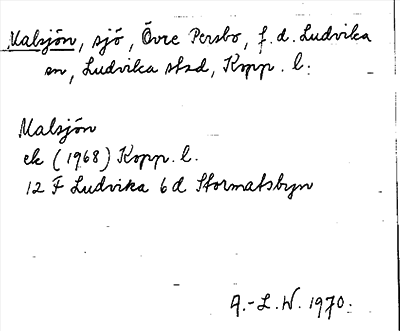 Malsjön, sjö, Övre Persbo, f.d. Ludvika
sn, Ludvika stad, Kopp. l.
Malsjön
ek (1968) Kopp. l.
12 F Ludvika 6 d Stormatsbyn
A.-L.W. 1970.